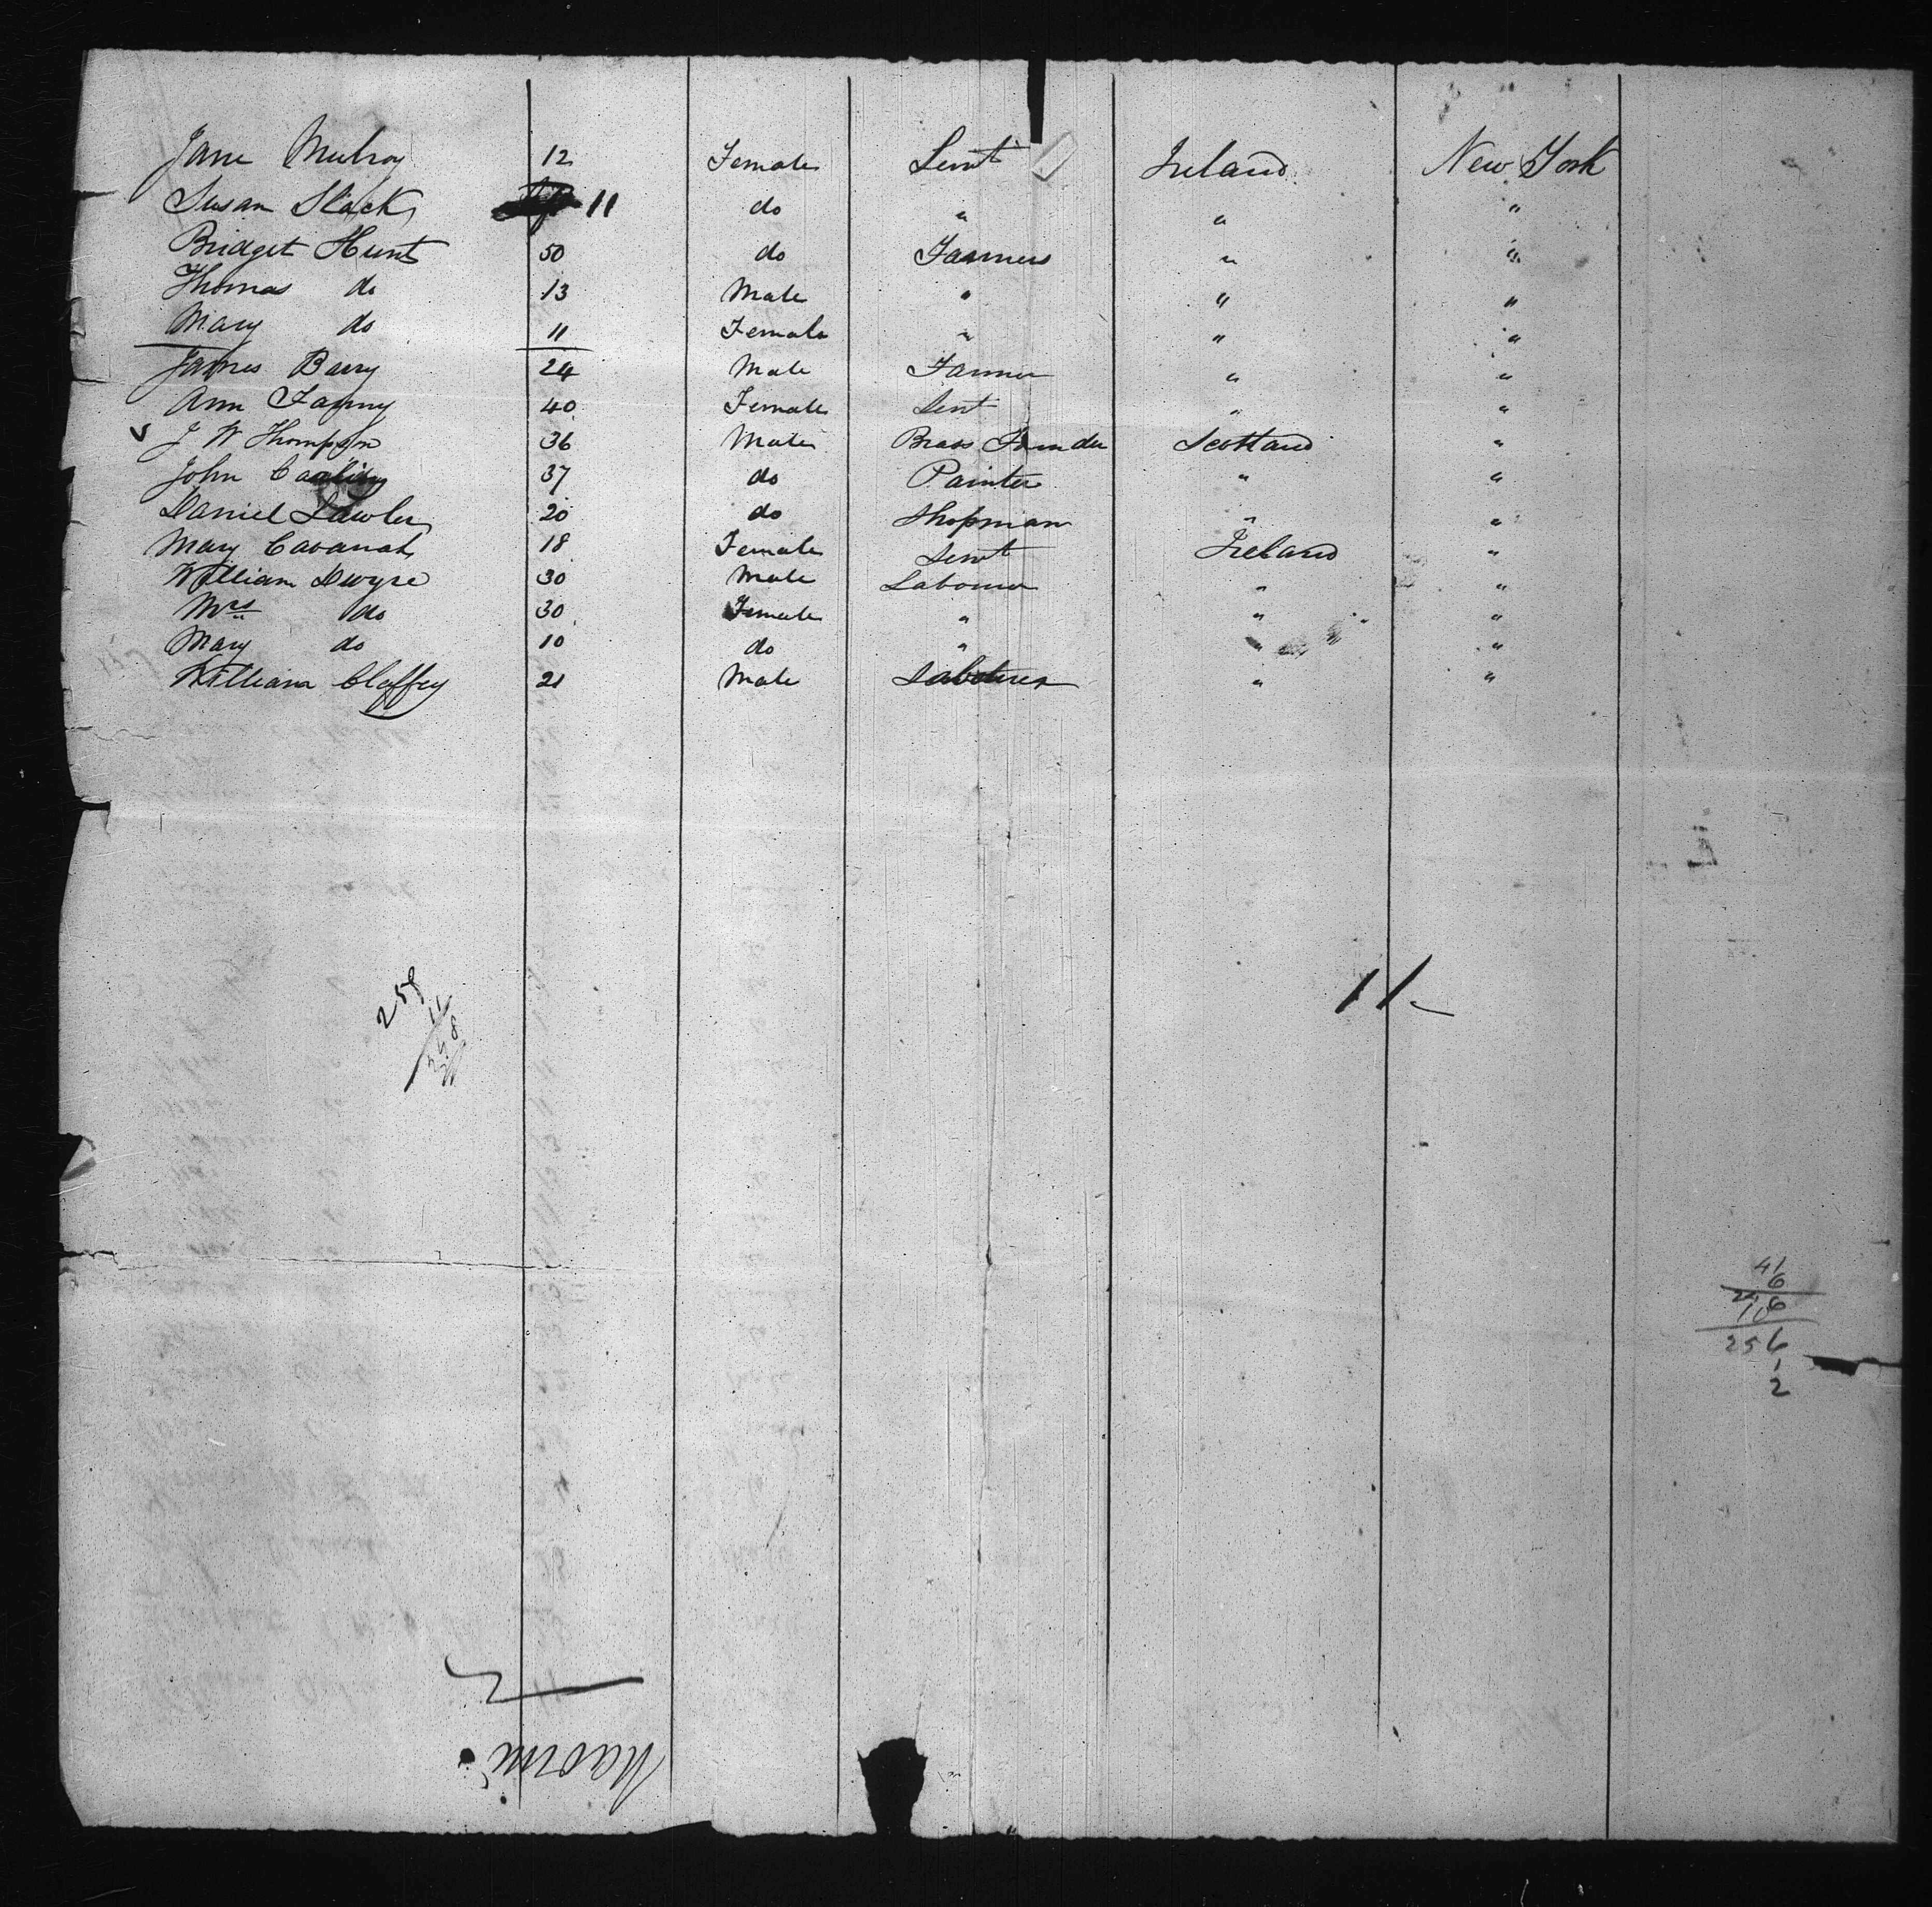 Jane Mulroy 12 Female Servt Ireland New York
Susan Slack 11 do " " "
Bridget Hunt 50 do Farmers " "
Thomas do 13 Male " " "
Mary do 11 Female " " "
James Barry 24 Male Farmer " "
Ann Fanny 40 Female Servt " "
J W Thompson 36 Male Brass Founder Scotland "
John 37 do Painter " "
Daniel Lawler 20 do Shopman " "
Mary Cavanah 18 Female Servt Ireland "
William Dwyre 30 Male Labourer " "
Mrs do 30 Female " " "
Mary do 10 do " " "
William Claffey 21 Male Labourer " "
11
11
248
41
6
246
10
256
1
2
Naomi